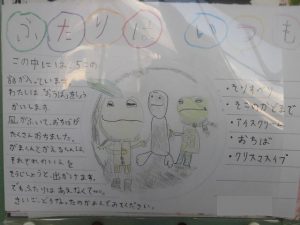 ふたりはいつも
この中には、5この
話が入っています。
わたしは「おちば」をしょう
かいします。
風がふいて、おちばが
たくさんおちました。
がまくんとかえるくんは、
それぞれのいえを
そうじしようと、出かけます。
でも、ふたりはあえなくて…。
さいご、どうなったのかよんでみてください。
・そりすべり
・そこのかどまで
・アイスクリーム
・おちば
・クリスマス・イブ